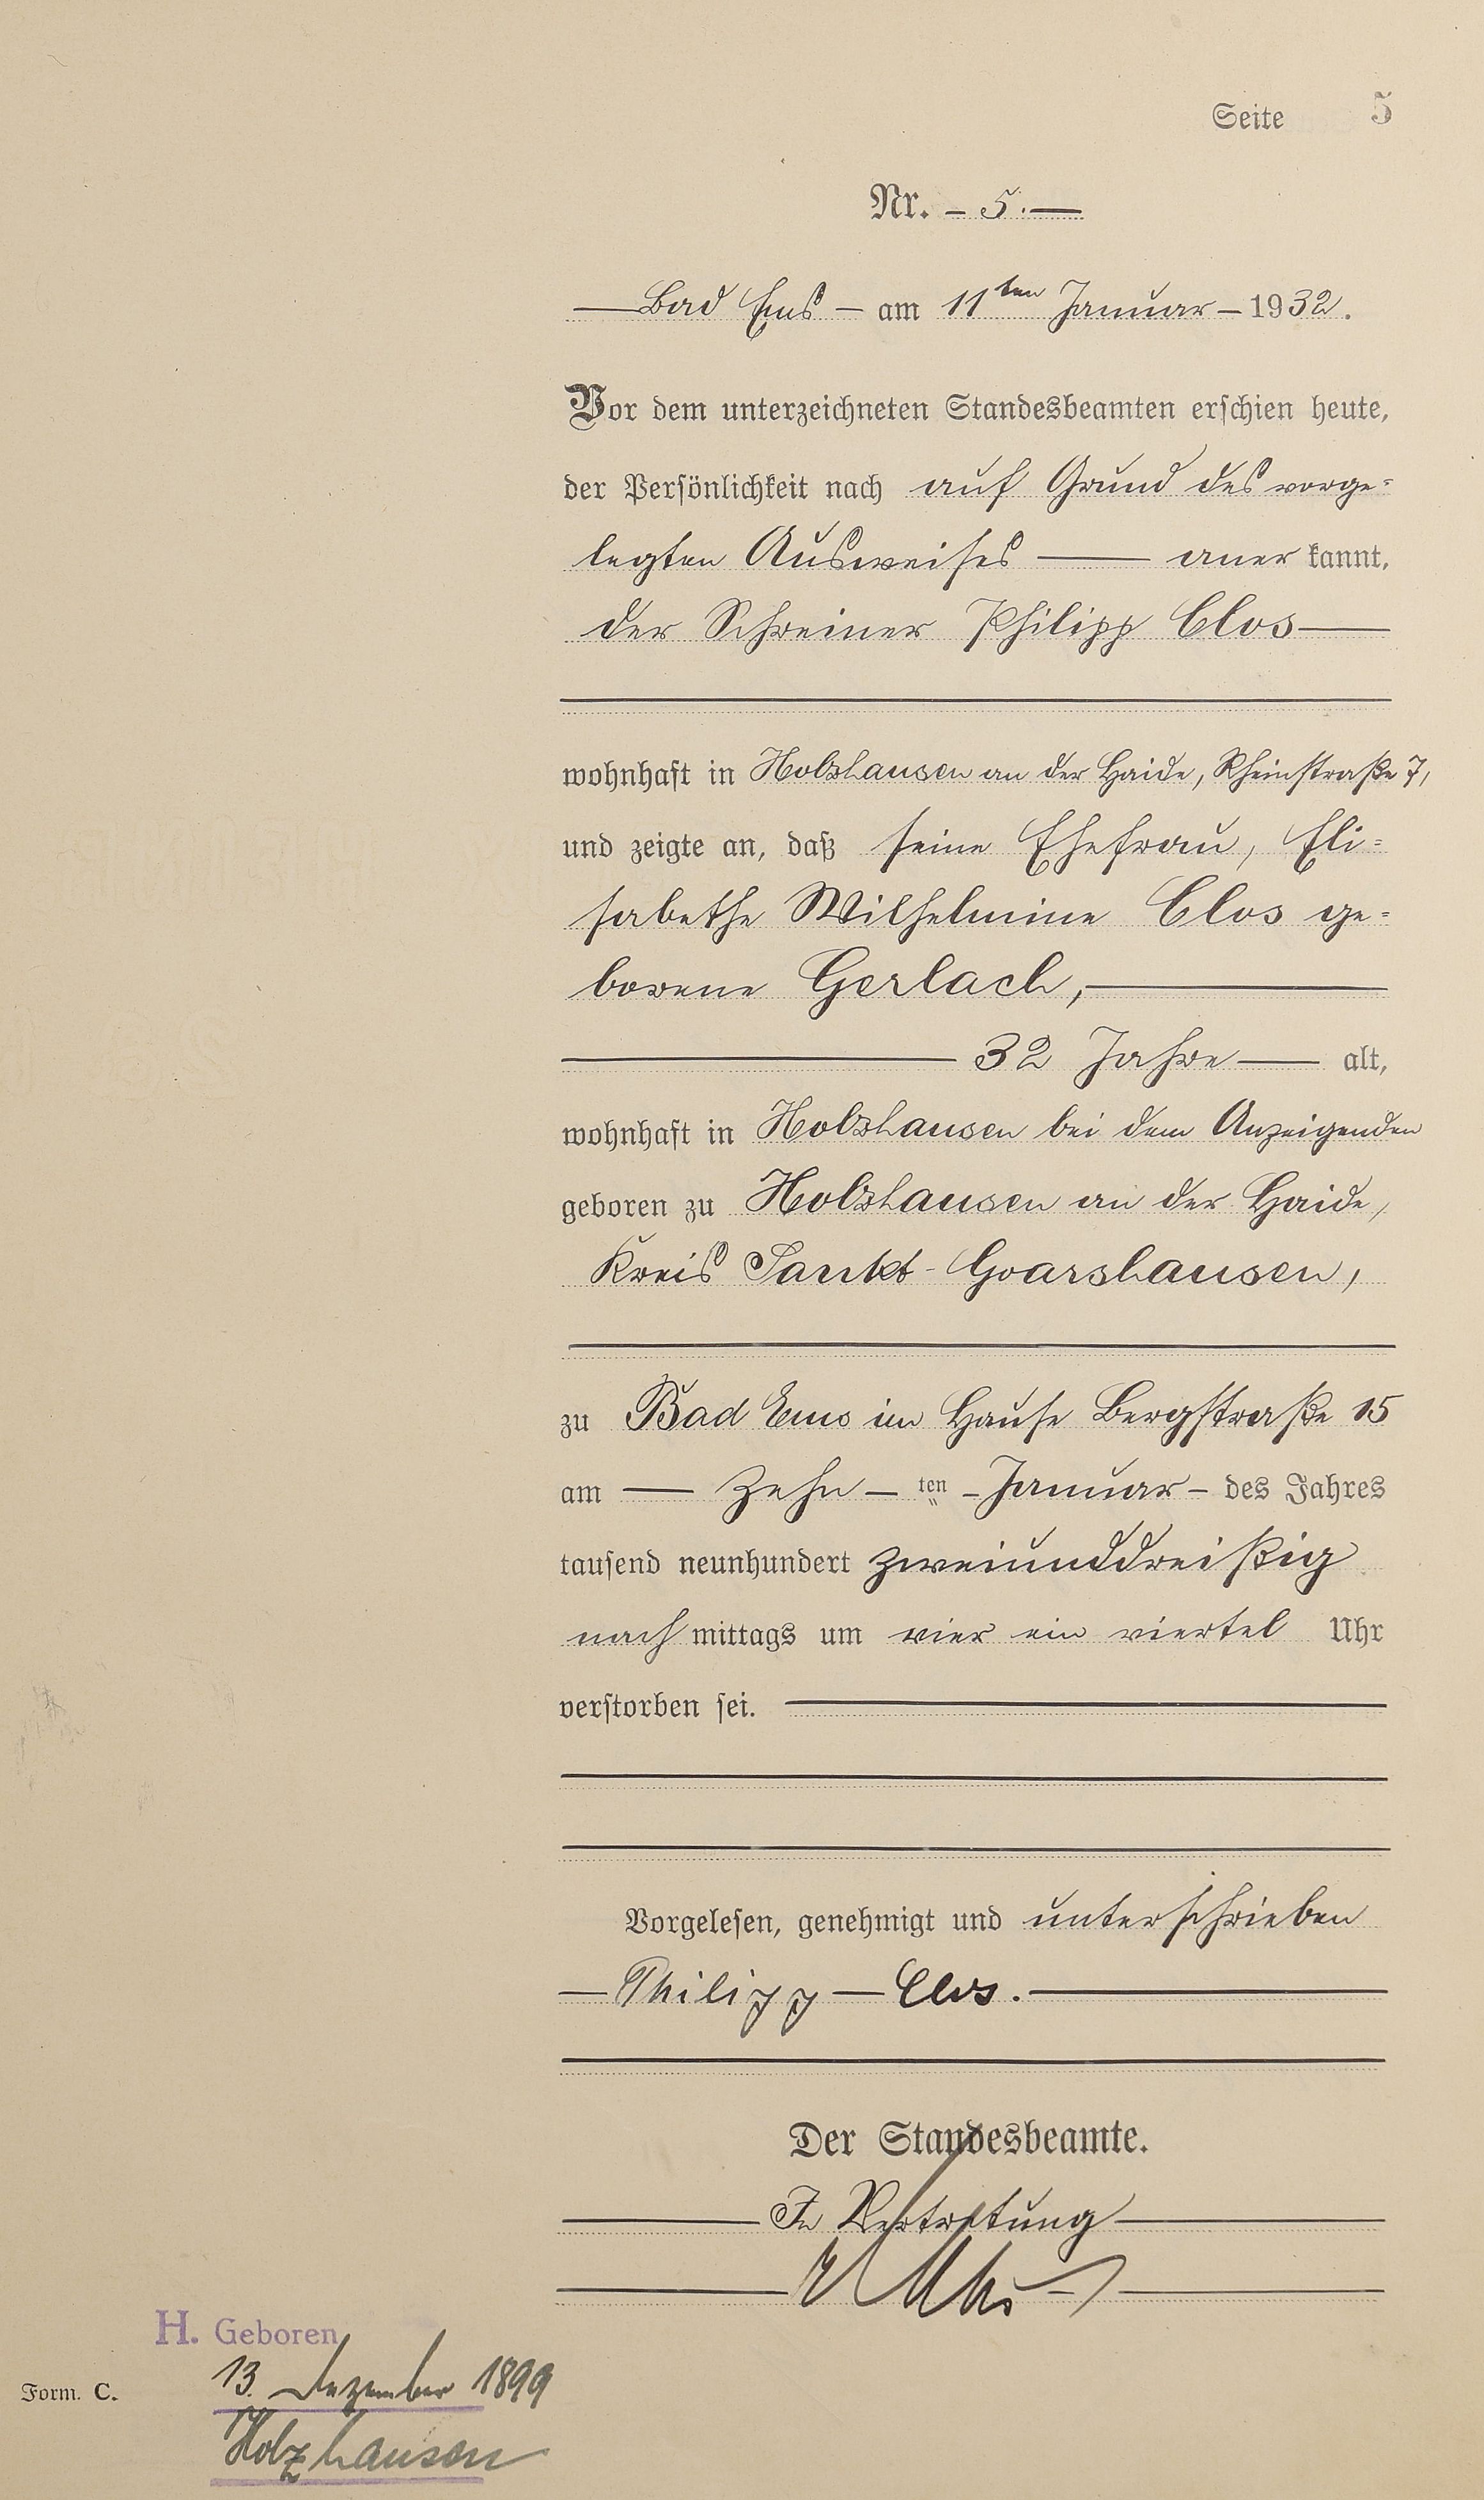 Seite 5
Nr. – 5. —
— Bad Ems – am 11ten Januar – 1932.
Vor dem unterzeichneten Standesbeamten erschien heute,
der Persönlichkeit nach auf Grund des vorge=
legten Ausweises — aner kannt,
der Schreiner Philipp Clos —
wohnhaft in Holzhausen an der Haide, Rheinstraße 7,
und zeigte an, daß seine Ehefrau, Eli=
sabethe Wilhelmine Clos ge=
borene Gerlach, —
— 32 Jahre — alt,
wohnhaft in Holzhausen bei dem Anzeigenden
geboren zu Holzhausen an der Haide,
Kreis Sankt-Goarshausen,
zu Bad Ems im Hause Bergstraße 15
am — zehn – ten – Januar – des Jahres
tausend neunhundert zweiunddreißig
nach mittags um vier ein viertel Uhr
verstorben sei. —
Vorgelesen, genehmigt und unterschrieben
— Philipp — Clos. —
Der Standesbeamte.
— In Vertretung —
H. Geboren
13. Dezember 1899
Form. C.
Holzhausen